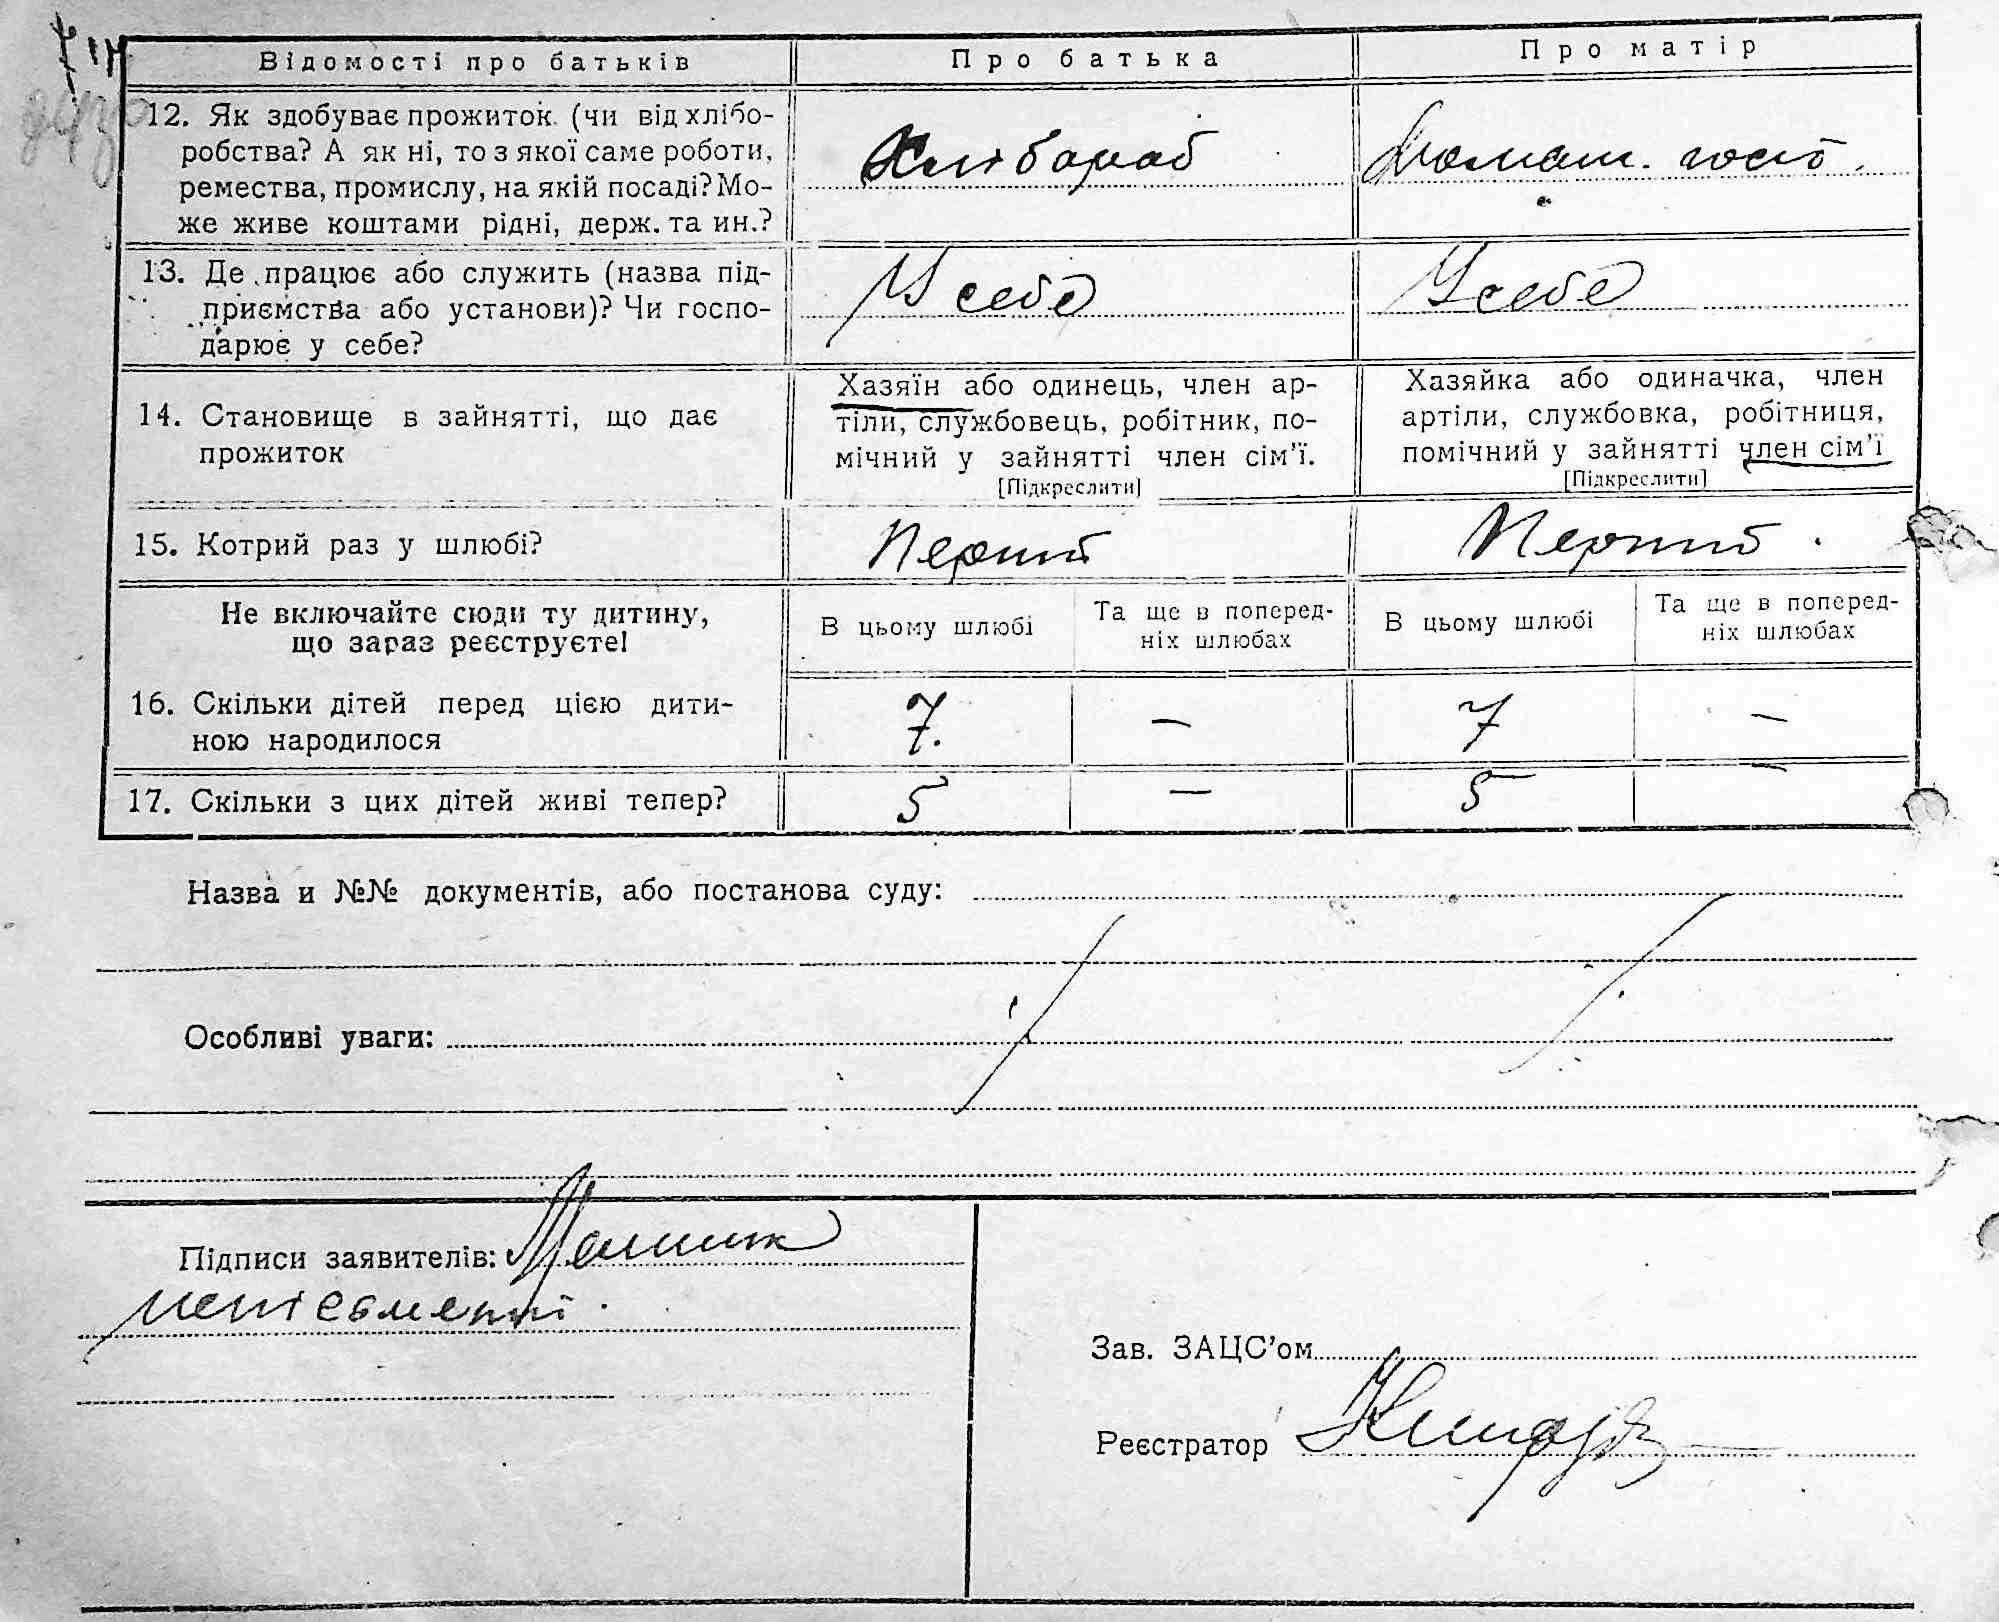 Відомості про батьків
Про батька
Про матір
12. Як здобуває прожиток (чи від хлібо-
робства? А як ні, то з якої саме роботи,
ремества, промислу, на якій посаді? Мо-
же живе коштами рідні, держ. та ин.?
Хлібороб
Домаш. госп.
13. Де працює або служить (назва під-
приємства або установи)? Чи госпо-
дарює у себе?
У себе
У себе
14. Становище в зайнятті, що дає
прожиток
Хазяїн або одинець, член ар-
тіли, службовець, робітник, по-
мічний у зайнятті член сім'ї.
[Підкреслити]
Хазяйка або одиначка, член
артіли, службовка, робітниця,
помічний у зайнятті член сім'ї
[Підкреслити]
15. Котрий раз у шлюбі?
Перший
Перший
Не включайте сюди ту дитину,
що зараз реєструєте!
В цьому шлюбі
Та ще в поперед-
ніх шлюбах
В цьому шлюбі
Та ще в поперед-
ніх шлюбах
16. Скільки дітей перед цією дити-
ною народилося
7. — 7 —
17. Скільки з цих дітей живі тепер?
5 — 5 —
Назва и №№ документів, або постанова суду:
Особливі уваги:
Підписи заявителів:
неписьменні.
Зав. ЗАЦС'ом
Реєстратор